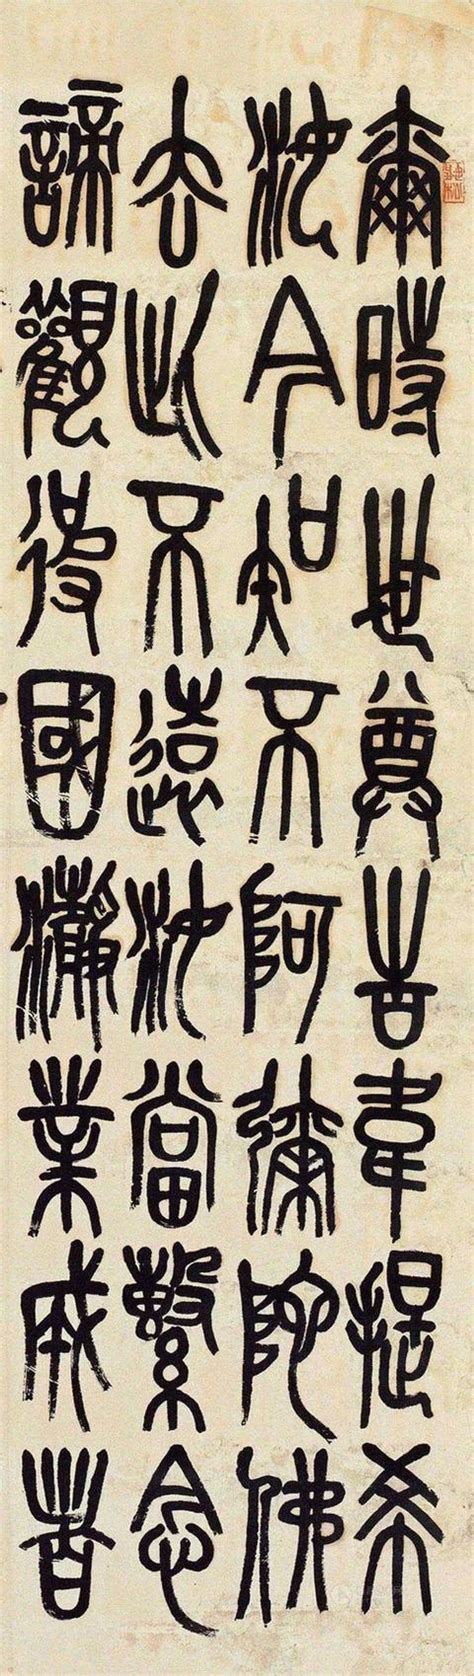 爾時世尊告韋提希
汝今知不阿彌陀佛
去此不遠汝當繫念
諦觀彼國淨業成者